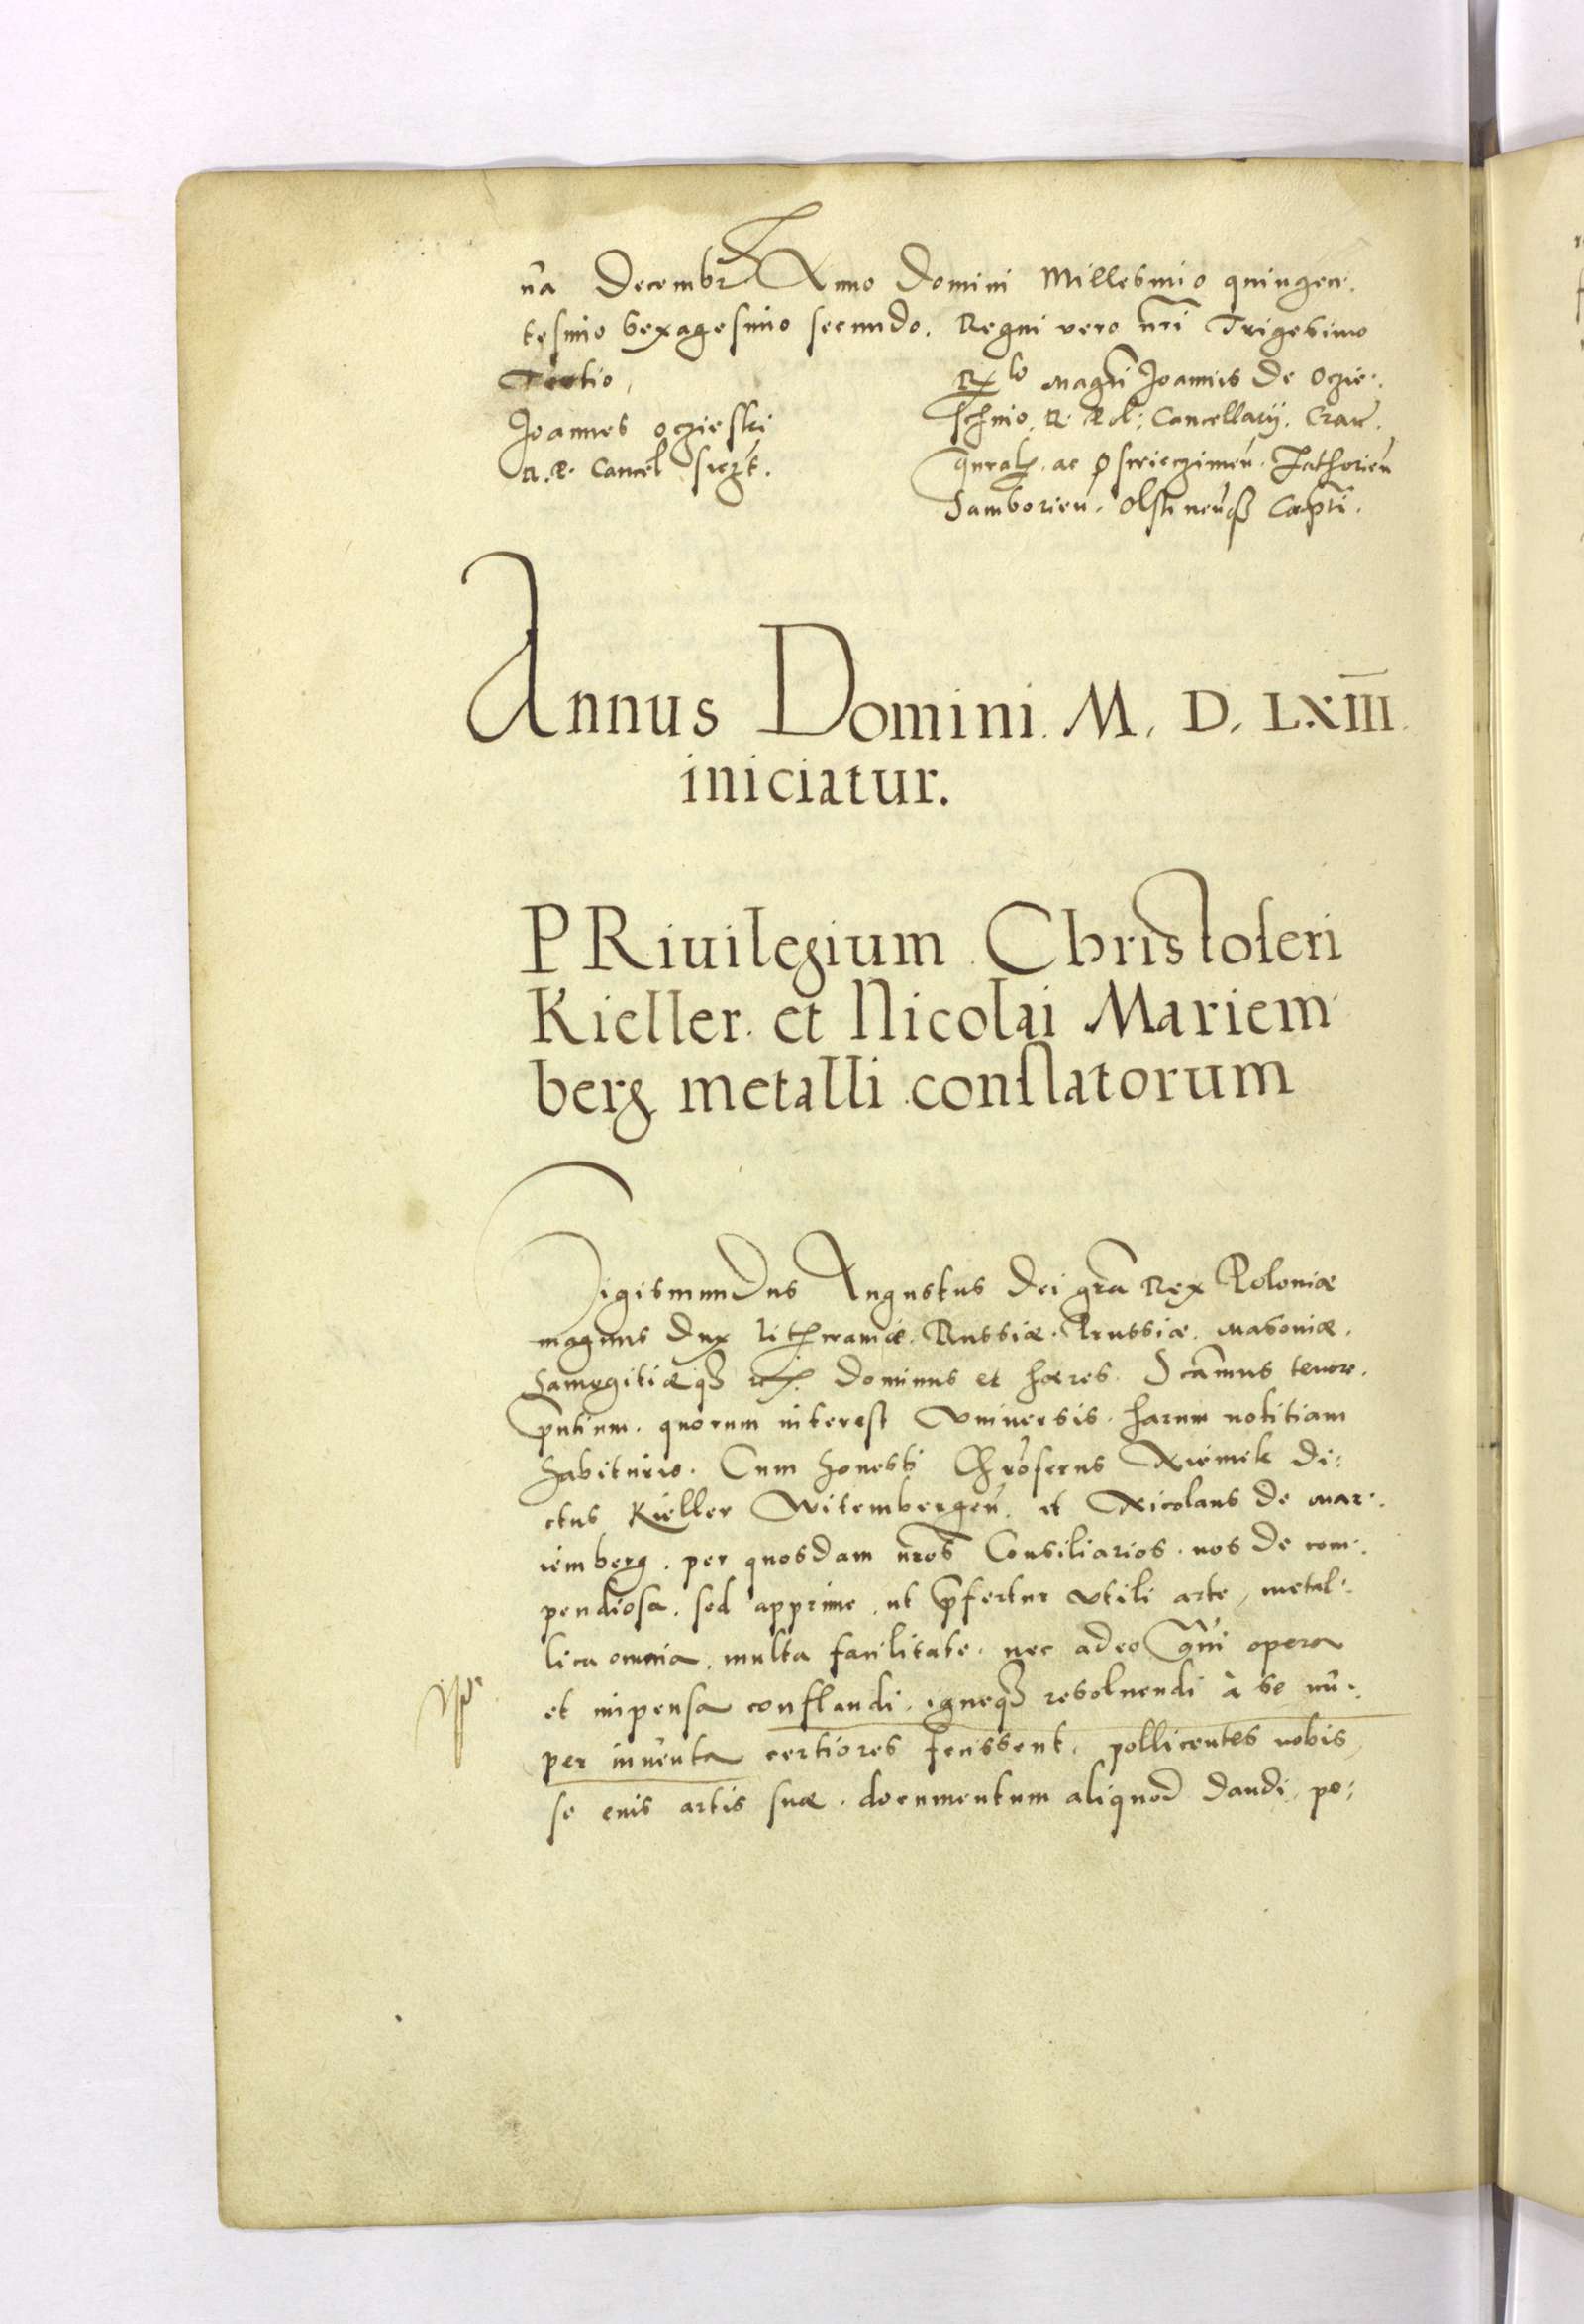 na Decembr Anno Domini Millesimo quingen.
tesimo sexagesimo secundo. Regni vero nri Trigesimo
Tertio,
Joannes oczieski
R. P. Cancel ssczt.
Rlo magci Joannis de oczie:
schino. R. Pol: Cancellarij. Crac.
gnralis. ac Oswieczimen. Zathorien
Samborien. Olstinensq Captі.
Annus Domini. M. D. LXIII.
iniciatur.
PRiuilegium Christoferi
Kieller. et Nicolai Mariem
berg metalli conflatorum
Sigismundus Augustus dei gra Rex Poloniæ
magnus dux Lithwaniæ. Russiæ. Prussiæ. masoviæ.
Samogitiæq etc. dominus et hæres. Scamus tenore.
pntium. quorum interest vniuersis. harum notitiam
habituris. Cum honesti Chroferus Niemek di:
ctus Kieller Witembergen. et Nicolaus de mar:
iemberg. per quosdam nros Consiliarios. nos de com:
pendiosa. sed apprime, ut prfertur vtili arte, metal:
lica omnia. multa facilitate. nec adeo grui opera
et impensa conflandi, igneq resoluendi à se nu:
per inuenta certiores fecissent. pollicentes nobis,
se eius artis suæ. documentum aliquod dandi, po: